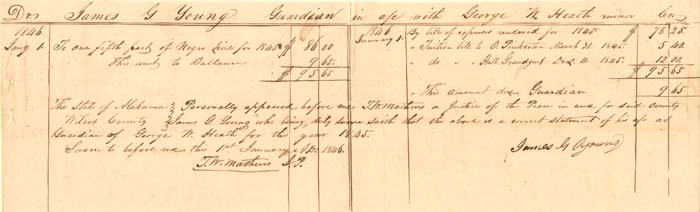 Drs James G Young Guardian in a/c with George W Heath minor Crs
1846
Jany 1. To one fifth part of Negro hire for 1845 $ 86 00
This amt to Ballance 9 65
$ 95 65
1846
January 1. By bill of expenses rendered for 1845 $ 78 25
" Tuition bill to O. March 31. 1845. 5 40
" do " Hall Dec 11. 1845. 12 00
$ 95 65
" This amount due Guardian 9 65
The State of Alabama } Personally appeared before me T. W. Mathews a Justice of the Peace in and for said County
Wilcox County } James G Young who being duly sworn saith that the above is a correct statement of his a/c as
Guardian of George W. Heath for the year 1845.
Sworn to before me this 1st January A.D. 1846.
T. W. Mathews J.P.
James G Young